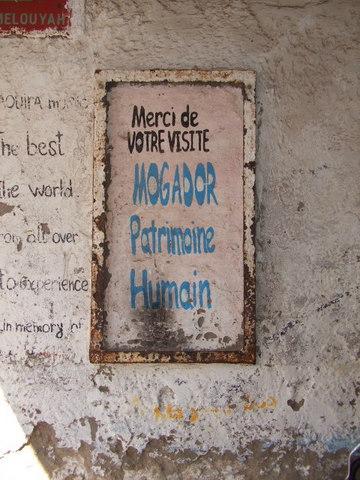 MELOUYAH
Merci de
VOTRE VISITE
MOGADOR
Patrimoine
Humain
music
The best
the world.
from all over
to experience
in memory of